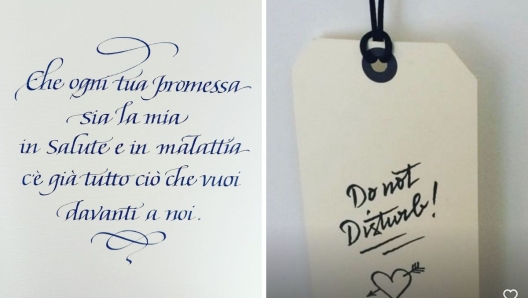 Che ogni tua promessa
sia la mia
in Salute e in malattia
c'è già tutto ciò che vuoi
davanti a noi.
Do not
Disturb!